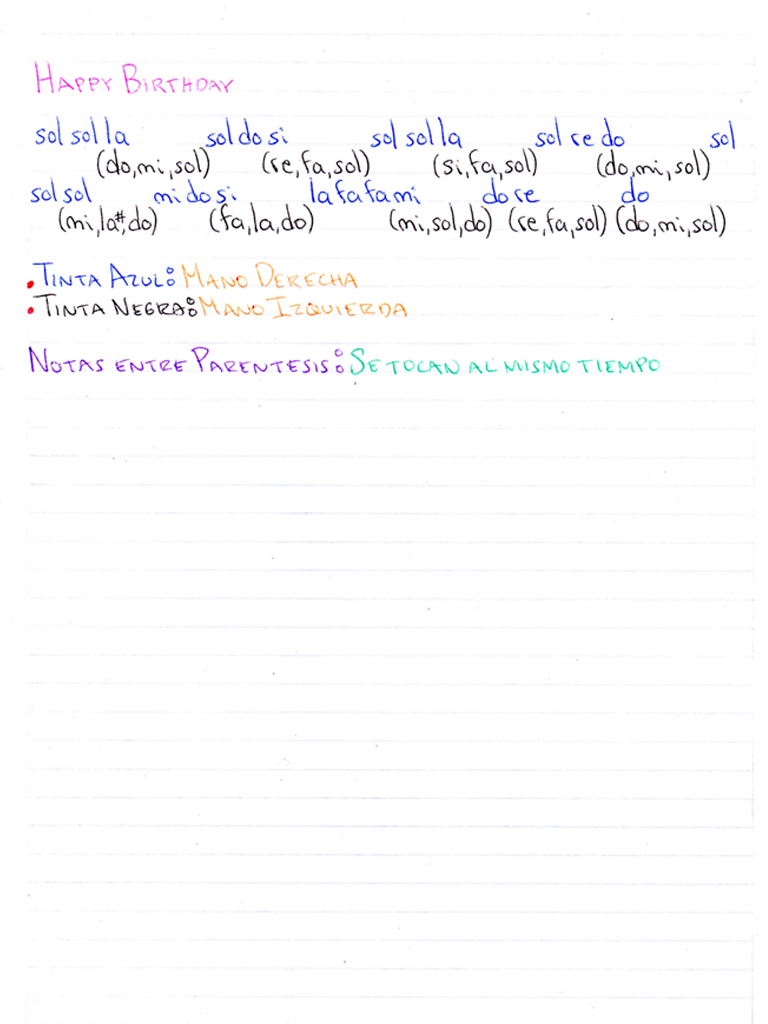 HAPPY BIRTHDAY
sol sol la sol do si sol sol la sol re do sol
(do,mi,sol) (re,fa,sol) (si,fa,sol) (do,mi,sol)
sol sol mi do si la fa fa mi do re do
(mi,la#,do) (fa,la,do) (mi,sol,do) (re,fa,sol) (do,mi,sol)
• TINTA AZUL: MANO DERECHA
• TINTA NEGRA: MANO IZQUIERDA
NOTAS ENTRE PARENTESIS: SE TOCAN AL MISMO TIEMPO